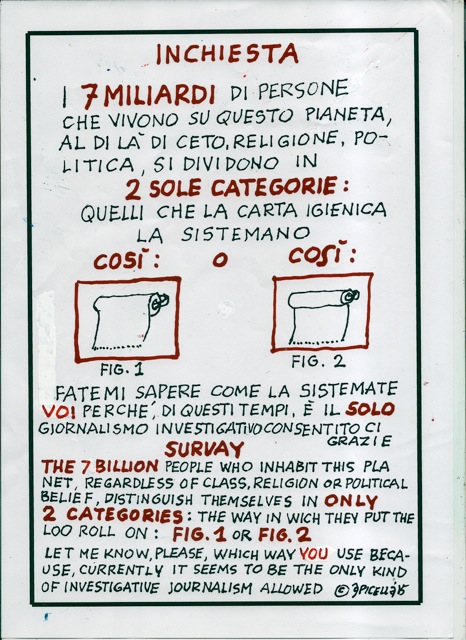 INCHIESTA
I 7 MILIARDI DI PERSONE
CHE VIVONO SU QUESTO PIANETA,
AL DI LÀ DI CETO, RELIGIONE, PO-
LITICA, SI DIVIDONO IN
2 SOLE CATEGORIE:
QUELLI CHE LA CARTA IGIENICA
LA SISTEMANO
COSÌ: O COSÌ:
FIG. 1 FIG. 2
FATEMI SAPERE COME LA SISTEMATE
VOI PERCHÉ, DI QUESTI TEMPI, È IL SOLO
GIORNALISMO INVESTIGATIVO CONSENTITOCI
GRAZIE
SURVAY
THE 7 BILLION PEOPLE WHO INHABIT THIS PLA
NET, REGARDLESS OF CLASS, RELIGION OR POLITICAL
BELIEF, DISTINGUISH THEMSELVES IN ONLY
2 CATEGORIES: THE WAY IN WICH THEY PUT THE
LOO ROLL ON: FIG. 1 OR FIG. 2
LET ME KNOW, PLEASE, WHICH WAY YOU USE BECA-
USE, CURRENTLY IT SEEMS TO BE THE ONLY KIND
OF INVESTIGATIVE JOURNALISM ALLOWED ©